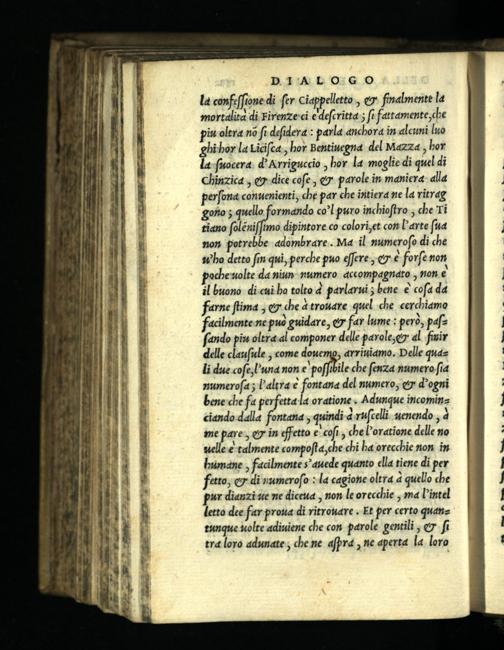 DIALOGO
la confessione di ser Ciappelletto, & finalmente la
mortalità di Firenze ci è descritta; si fattamente, che
piu oltra nō si desidera: parla anchora in alcuni luo
ghi hor la Licisca, hor Bentiuegna del Mazza, hor
la suocera d'Arriguccio, hor la moglie di quel di
Chinzica, & dice cose, & parole in maniera alla
persona conuenienti, che par che intiera ne la ritrag
gono; quello formando co'l puro inchiostro, che Ti
tiano solēnissimo dipintore co colori, et con l'arte sua
non potrebbe adombrare. Ma il numeroso di che
u'ho detto sin qui, perche puo essere, & è forse non
poche uolte da niun numero accompagnato, non è
il buono di cui ho tolto à parlarui; bene è cosa da
farne stima, & che à trouare quel che cerchiamo
facilmente ne può guidare, & far lume: però, pas-
sando piu oltra al componer delle parole, & al finir
delle clausule, come douemo, arriuiamo. Delle qua-
li due cose, l'una non è possibile che senza numero sia
numerosa; l'altra è fontana del numero, & d'ogni
bene che fa perfetta la oratione. Adunque incomin-
ciando dalla fontana, quindi à ruscelli uenendo, à
me pare, & in effetto è cosi, che l'oratione delle no
uelle è talmente composta, che chi ha orecchie non in
humane, facilmente s'auede quanto ella tiene di per
fetto, & di numeroso: la cagione oltra à quello che
pur dianzi ue ne diceua, non le orecchie, ma l'intel
letto dee far proua di ritrouare. Et per certo quan-
tunque uolte adiuiene che con parole gentili, & sì
tra loro adunate, che ne aspra, ne aperta la loro